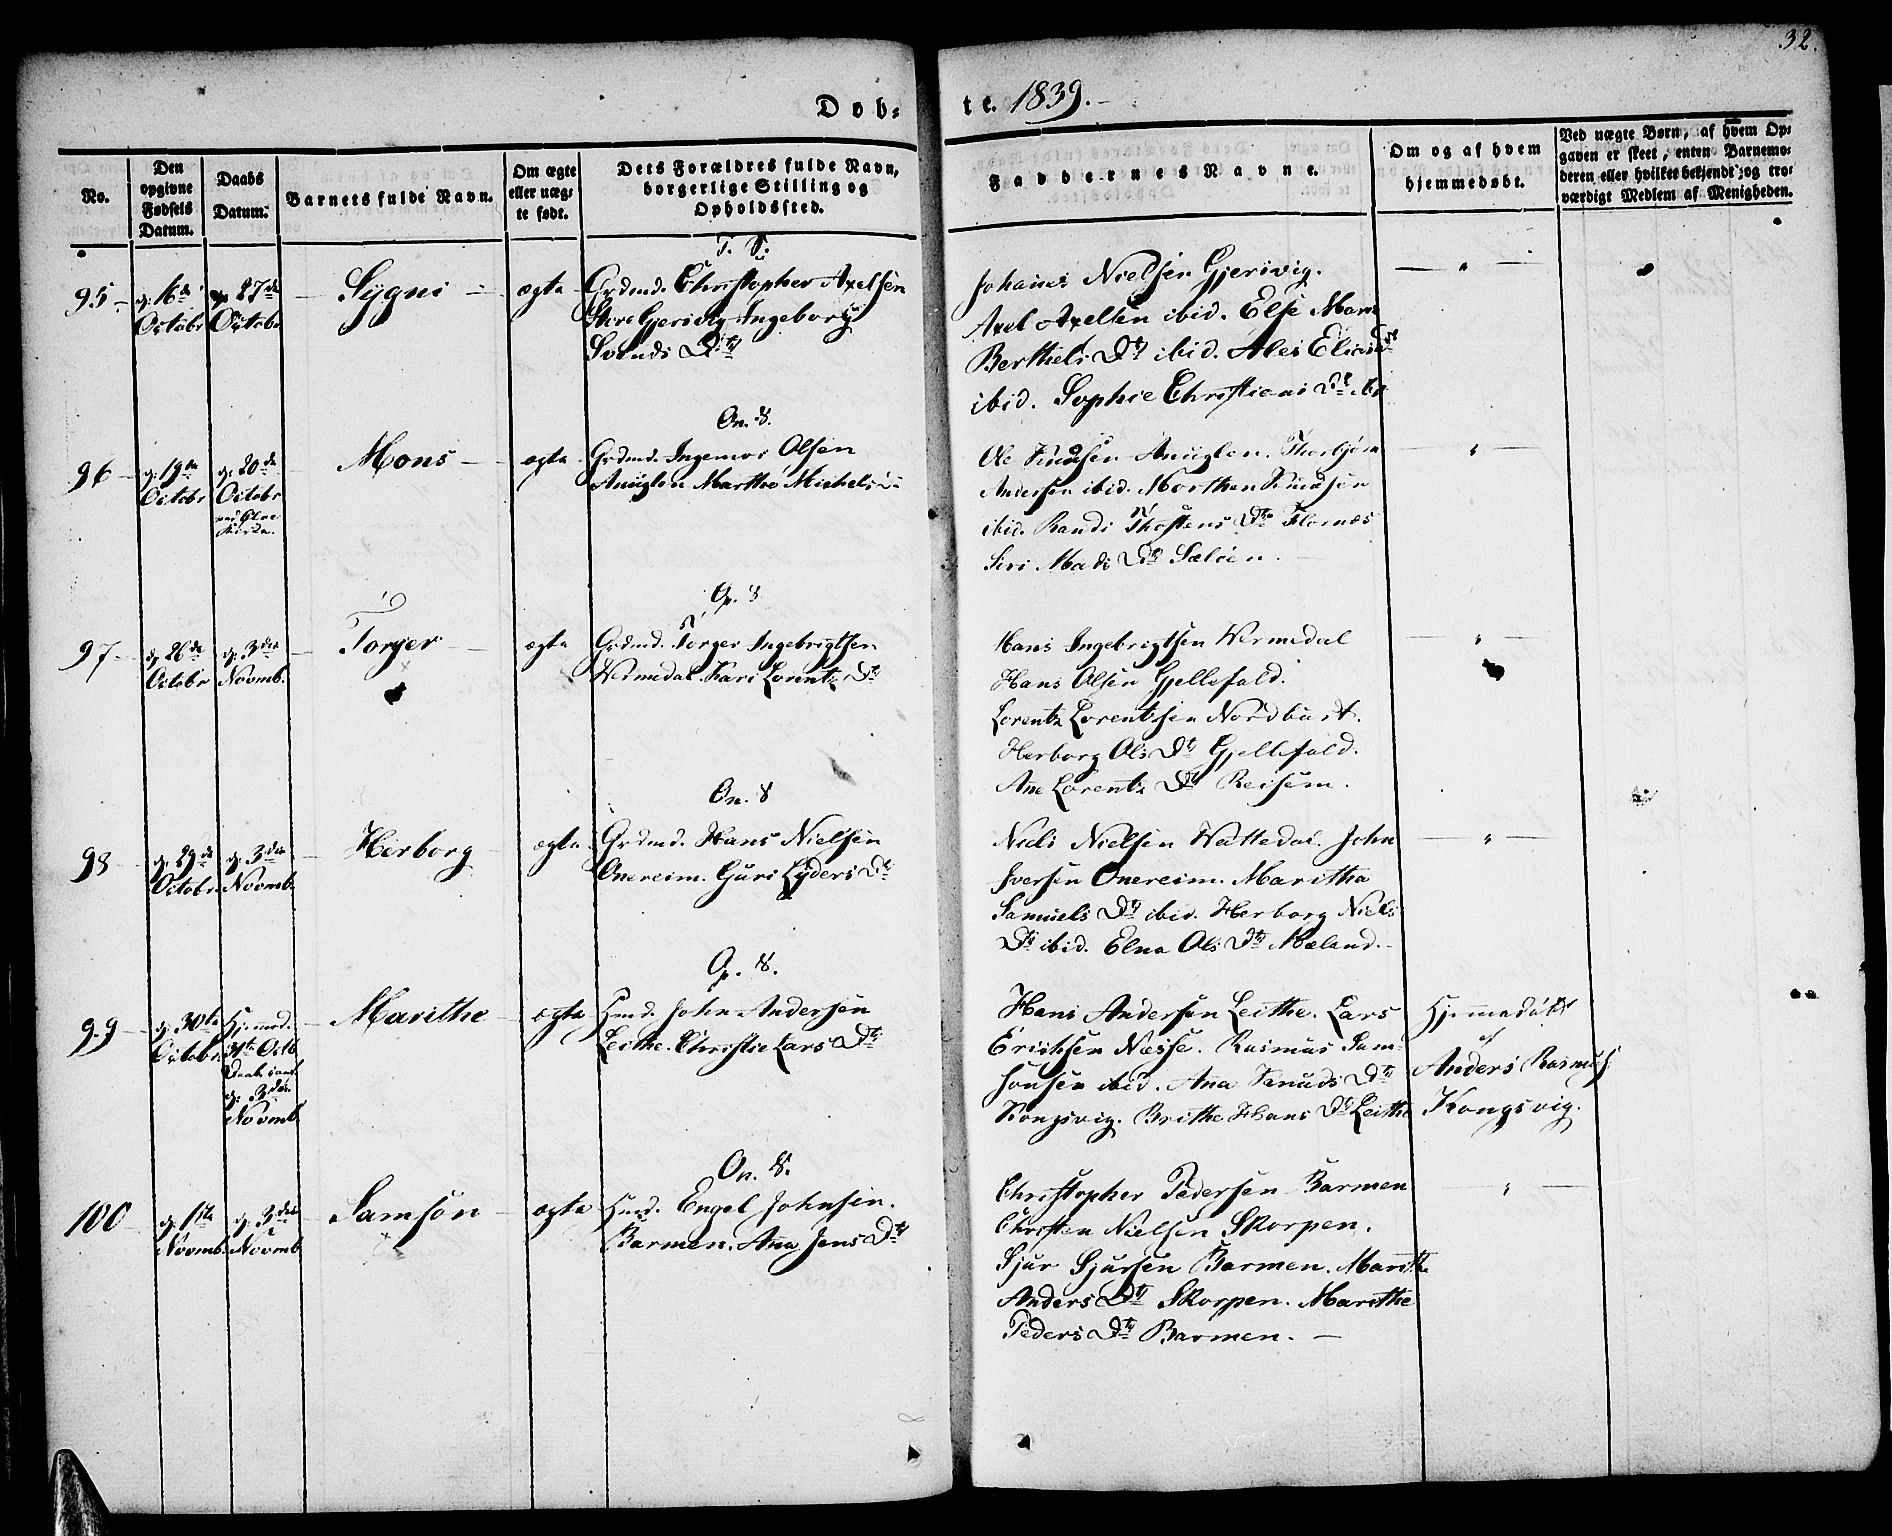 32.
Døb-
te. 1839.
No.
Den
opgivne
Fødsels
Datum.
Daabs
Datum.
Barnets fulde Navn.
Om ægte
eller uæg-
te født.
Dets Forældres fulde Navn,
borgerlige Stilling og
Opholdssted.
Faddernes Navne.
Om og af hvem
hjemmedøbt.
Ved uægte Børn, af hvem Op-
gaven er skeet, enten Barnemo-
deren eller hvilket bekjendt og tro-
værdigt Medlem af Menigheden.
95
d. 16de
Octobr
27de
Octobr
Sygni
ægte
Grdmd. Christopher Axelsen
Store Gjersvig Ingeborg
Svends Dtr
Johanes Nielsen Gjersvig.
Axel Axelsen ibid. Else Mons
Berthels Dtr ibid. Ales Elias Dtr
ibid. Sophie Christians Dtr ibi
On. S.
96
d. 19de
Octobr
d. 20de
Octobr
Mons
ægte
Grdmd. Ingemor Olsen
Aniiglen Marthe Michels Dtr
Ole Knudsen Aniiglen. Thorbjørn
Andersen ibid. Morthen Knudsen
ibid. Randi Thostens Dtr Flornæs
Siri Mads Dtr Sæløen.
97
d. 26de
Octobr
d. 3die
Novmb.
Torger
ægte
Grdmd. Torger Ingebrigtsen
Wermedal. Kari Lorentz Dtr
Hans Ingebrigtsen Wermedal
Hans Olsen Gjellefald.
Lorentz Lorentzsen Nordhust.
Herborg Ols Dtr Gjellefald.
Ane Lorentz Dtr Reisem.
On. S
98
d. 29de
Octobr
d. 3die
Novmb.
Herborg
ægte
Grdmd. Hans Nielsen
Onereim. Guri Lyders Dtr
Niels Nielsen Wattedal. John
Iversen Onereim. Marithe
Samuels Dtr ibid. Herborg Niels
Dtr ibid. Elna Ols Dtr Mæland.
99
d. 30te
Octobr
Hjemmed.
31te Octb.
d. 3die
Novmb.
Marithe
ægte
Hmd. John Andersen
Leithe. Christie Lars Dtr
Hans Andersen Leithe. Lars
Erichsen Næsse. Rasmus Sam-
sonsen ibid. Ana Knuds Dtr
Kongsvig. Brithe Hans Dtr Leithe
Hjemmedøbt
af
Anders Rasmus
Kongsvig.
On. S.
100
d. 1ste
Novmb.
d. 3die
Novmb
Samson
ægte
Hmd. Engel Johnsen.
Barmen. Ana Jens Dtr
Christopher Pedersen Barmen
Christen Nielsen Skorpen.
Sjur Sjursen Barmen. Marithe
Anders Dtr Skorpen. Marithe
Peders Dtr Barmen.